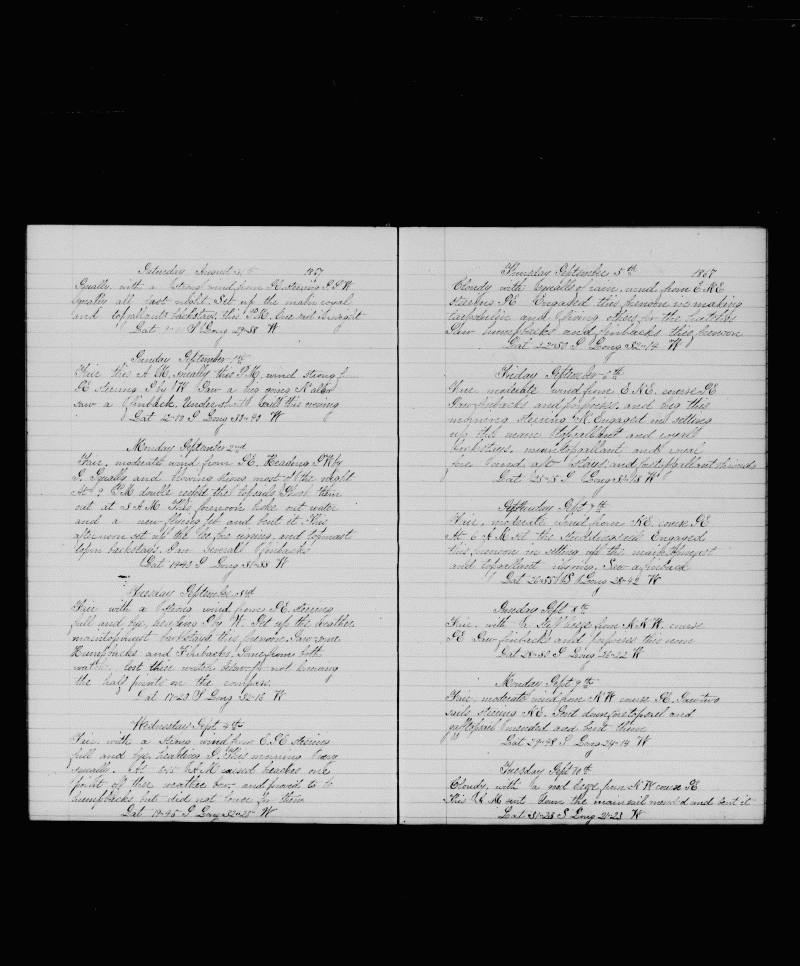 Saturday August 31st 1867
Squally with a strong wind from SE steering SSW
squally all last night. Set up the main royal
and topgallants backstays this PM. One sail in sight
Lat S Long 29-38 W
Sunday September 1st
Fair this A M, squally this P.M. wind strong f
SE steering S by W. Saw a brig going N also
saw a finback. Under short sail this evening
Lat 12-10 S Long 30-40 W
Monday September 2nd
Fair, moderate wind from SE. Heading SW by
S. Squally and blowing strong most of the night
At 9 P.M double reefed the topsails. Shook them
out at 5 A M. This forenoon broke out water
and a new flying jib and bent it. This
afternoon set up the lee fore rigging, and topmast
topm backstays. Saw several finbacks
Lat 14-43 S Long 31-33 W
Tuesday September 3rd
Fair with a strong wind from SE. steering
full and bye, heading S by W. Set up the weather
maintopmast backstays this forenoon. Saw some
Humpbacks and Finbacks. Some from both
watches lost their watch below for not knowing
the half points on the compass.
Lat 17-20 S Long 32-16 W
Wednesday Sept 4th
Fair with a strong wind from ESE steering
full and bye heading S. This morning very
squally. At A.M raised breaches one
point off the weather bow and proved to be
humpbacks but did not lower for them
Lat 19-45 S Long 32-25 W
Thursday September 5th 1867
Cloudy with squalls of rain, wind from ENE
steering SE Engaged this forenoon in making
and fixing offers for the hatches
Saw humpbacks and finbacks this forenoon
Lat 22-50 S Long 32-14 W
Friday September 6th
Fair moderate wind from ENE. course SE
Saw finbacks and porpoises and brig this
morning steering N. Engaged in setting
up the main topgallant and royal
backstays, maintopgallant and royal
fore and aft stays and foretopgallant shrouds
Lat 25-3 S Long 30-18 W
Saturday Sept 7th
Fair, moderate wind from NE. course SE
At 6 A M Engaged
this forenoon in setting up the main topmast
and topgallant rigging. Saw a finback
Lat 26-55 S Long 28-42 W
Sunday Sept 8th
Fair, with a stiff breeze from NNW. course
SE Saw finbacks and porpoises this noon
Lat 28-30 S Long 26-22 W
Monday Sept 9th
Fair, moderate wind from NW course SE. Saw two
sails steering NE. Sent down foretopsail and
mended and bent them
Lat 29-48 S Long 24-14 W
Tuesday Sept 10th
Cloudy, with a breeze from NW course SE
This A M sent down the mainsail mend'd and bent it
Lat 31-23 S Long 21-23 W